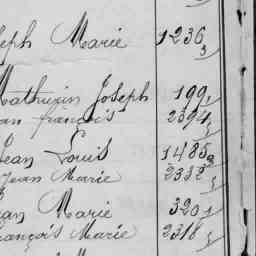 seph Marie 1236
Mathurin Joseph 199
an françois 2394
Jean Louis 1485
Jean Marie 2332
ean Marie 320
rançois Marie 2318